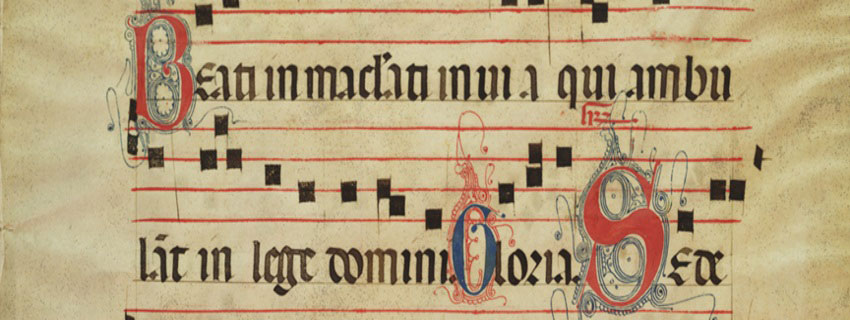 Beati inmac̄lati inuia qui ambu
lāt in lege domini. Gloria. Sede